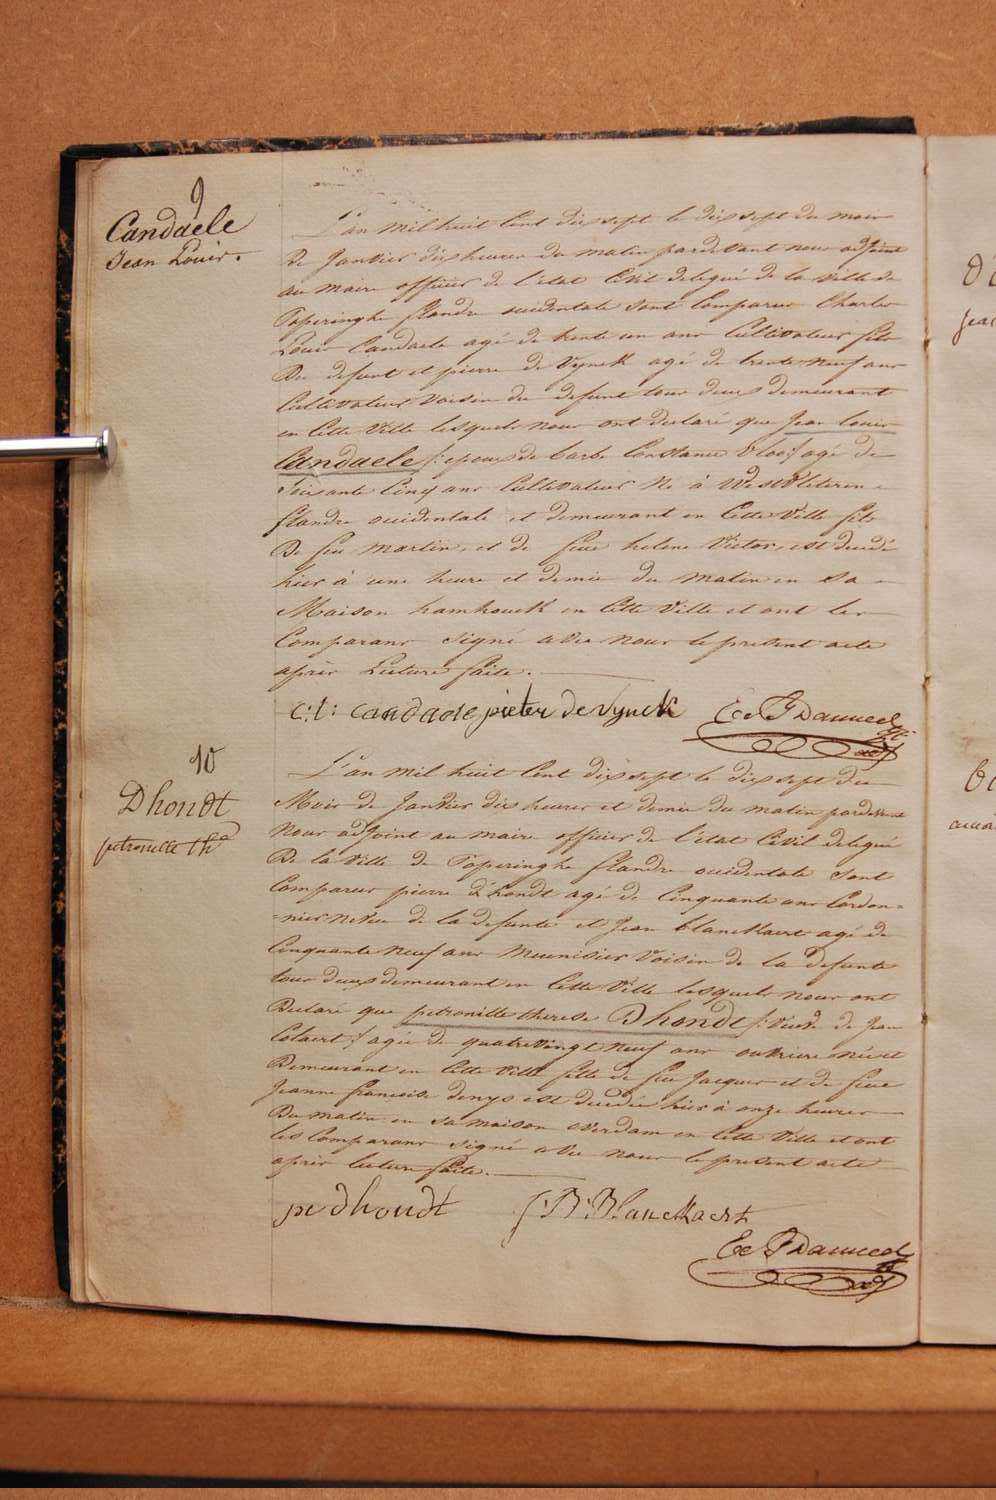 9
Candaele
Jean Louis.
L'an mil huit Cent dix sept le dix sept du mois
De Janvier dix heures du matin pardevant nous adjoint
au maire officier de l'état Civil delegué de la ville de
Poperinghe flandre occidentale sont Comparus Charles
Louis Candaele agé de trente un ans Cultivateur fils
Du defunt et pierre de Vynck agé de trente neuf ans
Cultivateur voisin du defunt tous deux demeurant
en Cette Ville lesquels nous ont declaré que Jean louis
Candaele /: epoux de barbe Constance Vloo :/ agé de
Soixante Cinq ans Cultivateur Né à WestVleteren
flandre occidentale et demeurant en Cette Ville fils
De feu martin, et de feue helene Victor, est decedé
hier à une heure et demie du matin en sa
Maison hamhouck en Cette Ville et ont les
Comparans signé avec nous le present acte
après Lecture faite.
c: l: candaele pieter de Vynck
10
Dhondt
petronille th.e
L'an mil huit Cent dix sept le dix sept du
Mois de Janvier dix heures et demie du matin pardevant
Nous adjoint au maire officier de l'état Civil delegué
De la Ville de Poperinghe flandre occidentale sont
Comparus pierre d'hondt agé de Cinquante ans Cordon=
=nier neveu de la defunte et Jean blanckaert agé de
Cinquante neuf ans meunisier Voisin de la defunte
tous deux demeurant en Cette Ville lesquels nous ont
Declaré que petronille therese Dhondt /: Veuve de Jean
Colaert :/ agée de quatre Vingt neuf ans ouvriere née et
Demeurant en Cette Ville fille de feu Jacques et de feue
Jeanne francoise denys est decedée hier à onze heures
Du matin en sa maison overdam en Cette Ville et ont
les Comparans signé avec nous le present acte
après lecture faite.
pe dhondt J: B: Blanckaert